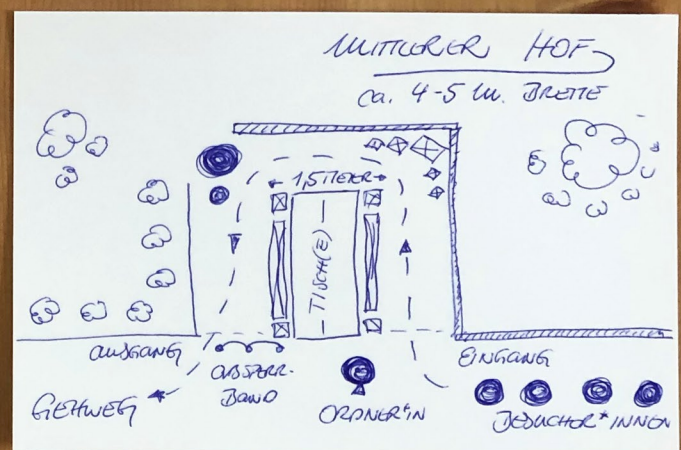 MITTLERER HOF
ca. 4-5 m. BREITE
1,5 METER
TISCH(E)
AUSGANG
EINGANG
ABSPERR-
BAND
GEHWEG
ORDNER*IN
BESUCHER*INNEN